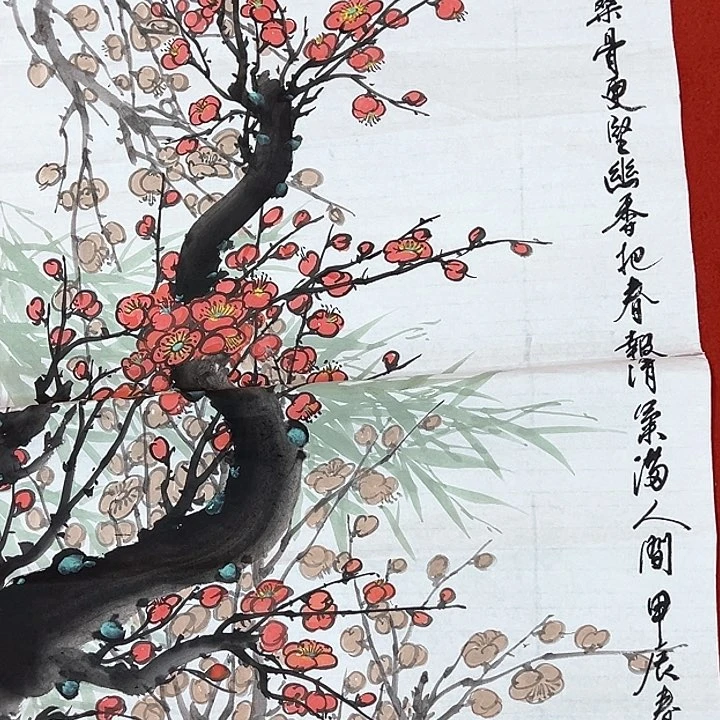 骨更坚幽香把春報清氣满人間甲辰春